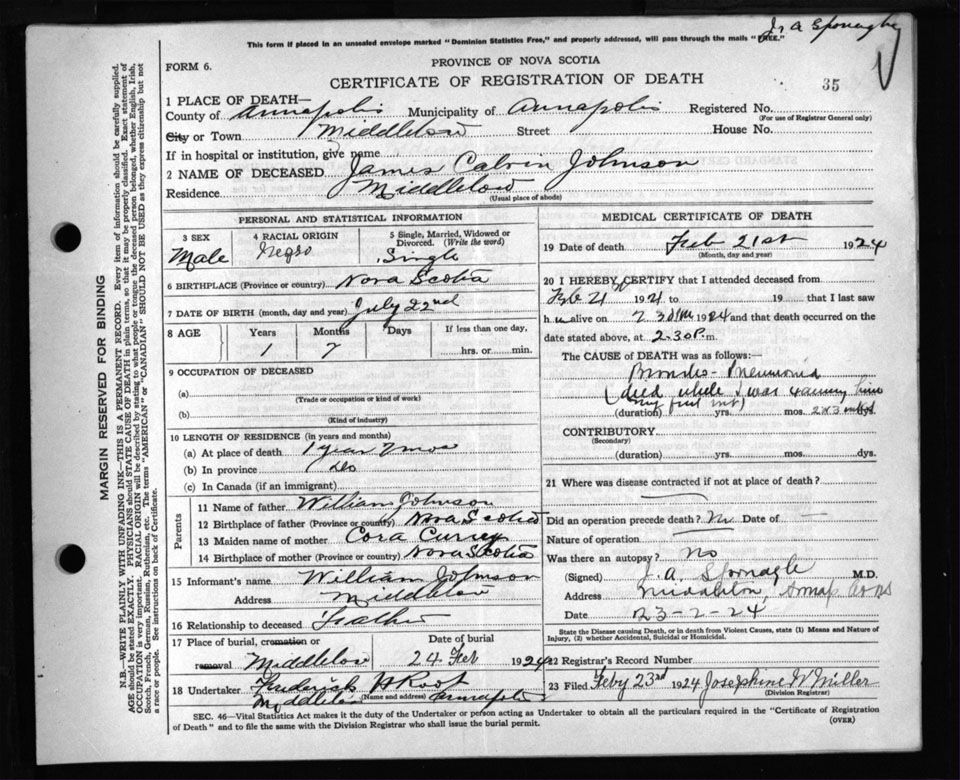 J. A. Sponagle
This form if placed in an unsealed envelope marked "Dominion Statistics Free," and properly addressed, will pass through the mails "FREE."
FORM 6.
PROVINCE OF NOVA SCOTIA
CERTIFICATE OF REGISTRATION OF DEATH
35
1 PLACE OF DEATH—
County of Annapolis Municipality of Annapolis Registered No.
(For use of Registrar General only)
City or Town Middleton Street House No.
If in hospital or institution, give name
2 NAME OF DECEASED James Calvin Johnson
Residence Middleton
(Usual place of abode)
PERSONAL AND STATISTICAL INFORMATION
3 SEX 4 RACIAL ORIGIN 5 Single, Married, Widowed or Divorced. (Write the word)
Male Negro Single
6 BIRTHPLACE (Province or country) Nova Scotia
7 DATE OF BIRTH (month, day and year) July 22nd
8 AGE Years Months Days If less than one day,
1 7 hrs. or min.
9 OCCUPATION OF DECEASED
(a)
(Trade or occupation or kind of work)
(b)
(Kind of industry)
10 LENGTH OF RESIDENCE (in years and months)
(a) At place of death 1 year 7 mos
(b) In province do
(c) In Canada (if an immigrant)
Parents
11 Name of father William Johnson
12 Birthplace of father (Province or country) Nova Scotia
13 Maiden name of mother Cora Currey
14 Birthplace of mother (Province or country) Nova Scotia
15 Informant's name William Johnson
Address Middleton
16 Relationship to deceased Father
17 Place of burial, cremation or Date of burial
removal Middleton 24 Feb 1924
18 Undertaker Frederick
(Name and address)
Middleton Annapolis
MEDICAL CERTIFICATE OF DEATH
19 Date of death Feb 21st 1924
(Month, day and year)
20 I HEREBY CERTIFY that I attended deceased from
Feb 21 1921 to 19 that I last saw
h alive on 2 30 PM 1924 and that death occurred on the
date stated above, at 2.30 P.m.
The CAUSE of DEATH was as follows:
Broncho-Pneumonia
(died while I was seeing him
my first visit)
(duration) yrs. mos. 2 or 3 dys.
CONTRIBUTORY
(Secondary)
(duration) yrs. mos. dys.
21 Where was disease contracted if not at place of death?
Did an operation precede death? No Date of —
Nature of operation
Was there an autopsy? No
(Signed) J. A. Sponagle M.D.
Address Middleton, Annap. Co NS
Date 23-2-24
State the Disease causing Death, or in death from Violent Causes, state (1) Means and Nature of
Injury, (2) whether Accidental, Suicidal or Homicidal.
22 Registrar's Record Number
23 Filed Feby 23rd 1924 Josephine W Miller
(Division Registrar)
SEC. 46—Vital Statistics Act makes it the duty of the Undertaker or person acting as Undertaker to obtain all the particulars required in the "Certificate of Registration
of Death" and to file the same with the Division Registrar who shall issue the burial permit.
(OVER)
MARGIN RESERVED FOR BINDING
N.B.—WRITE PLAINLY WITH UNFADING INK—THIS IS A PERMANENT RECORD. Every item of information should be carefully supplied.
AGE should be stated EXACTLY. PHYSICIANS should STATE CAUSE OF DEATH in plain terms, so that it may be properly classified. Exact statement of
OCCUPATION is very important. RACIAL ORIGIN will be described by stating to what people or tongue the deceased person belonged, whether English, Irish,
Scotch, French, German, Russian, Ruthenian, etc. The terms "AMERICAN" or "CANADIAN" SHOULD NOT BE USED as they express citizenship but not
a race or people. See instructions on back of Certificate.